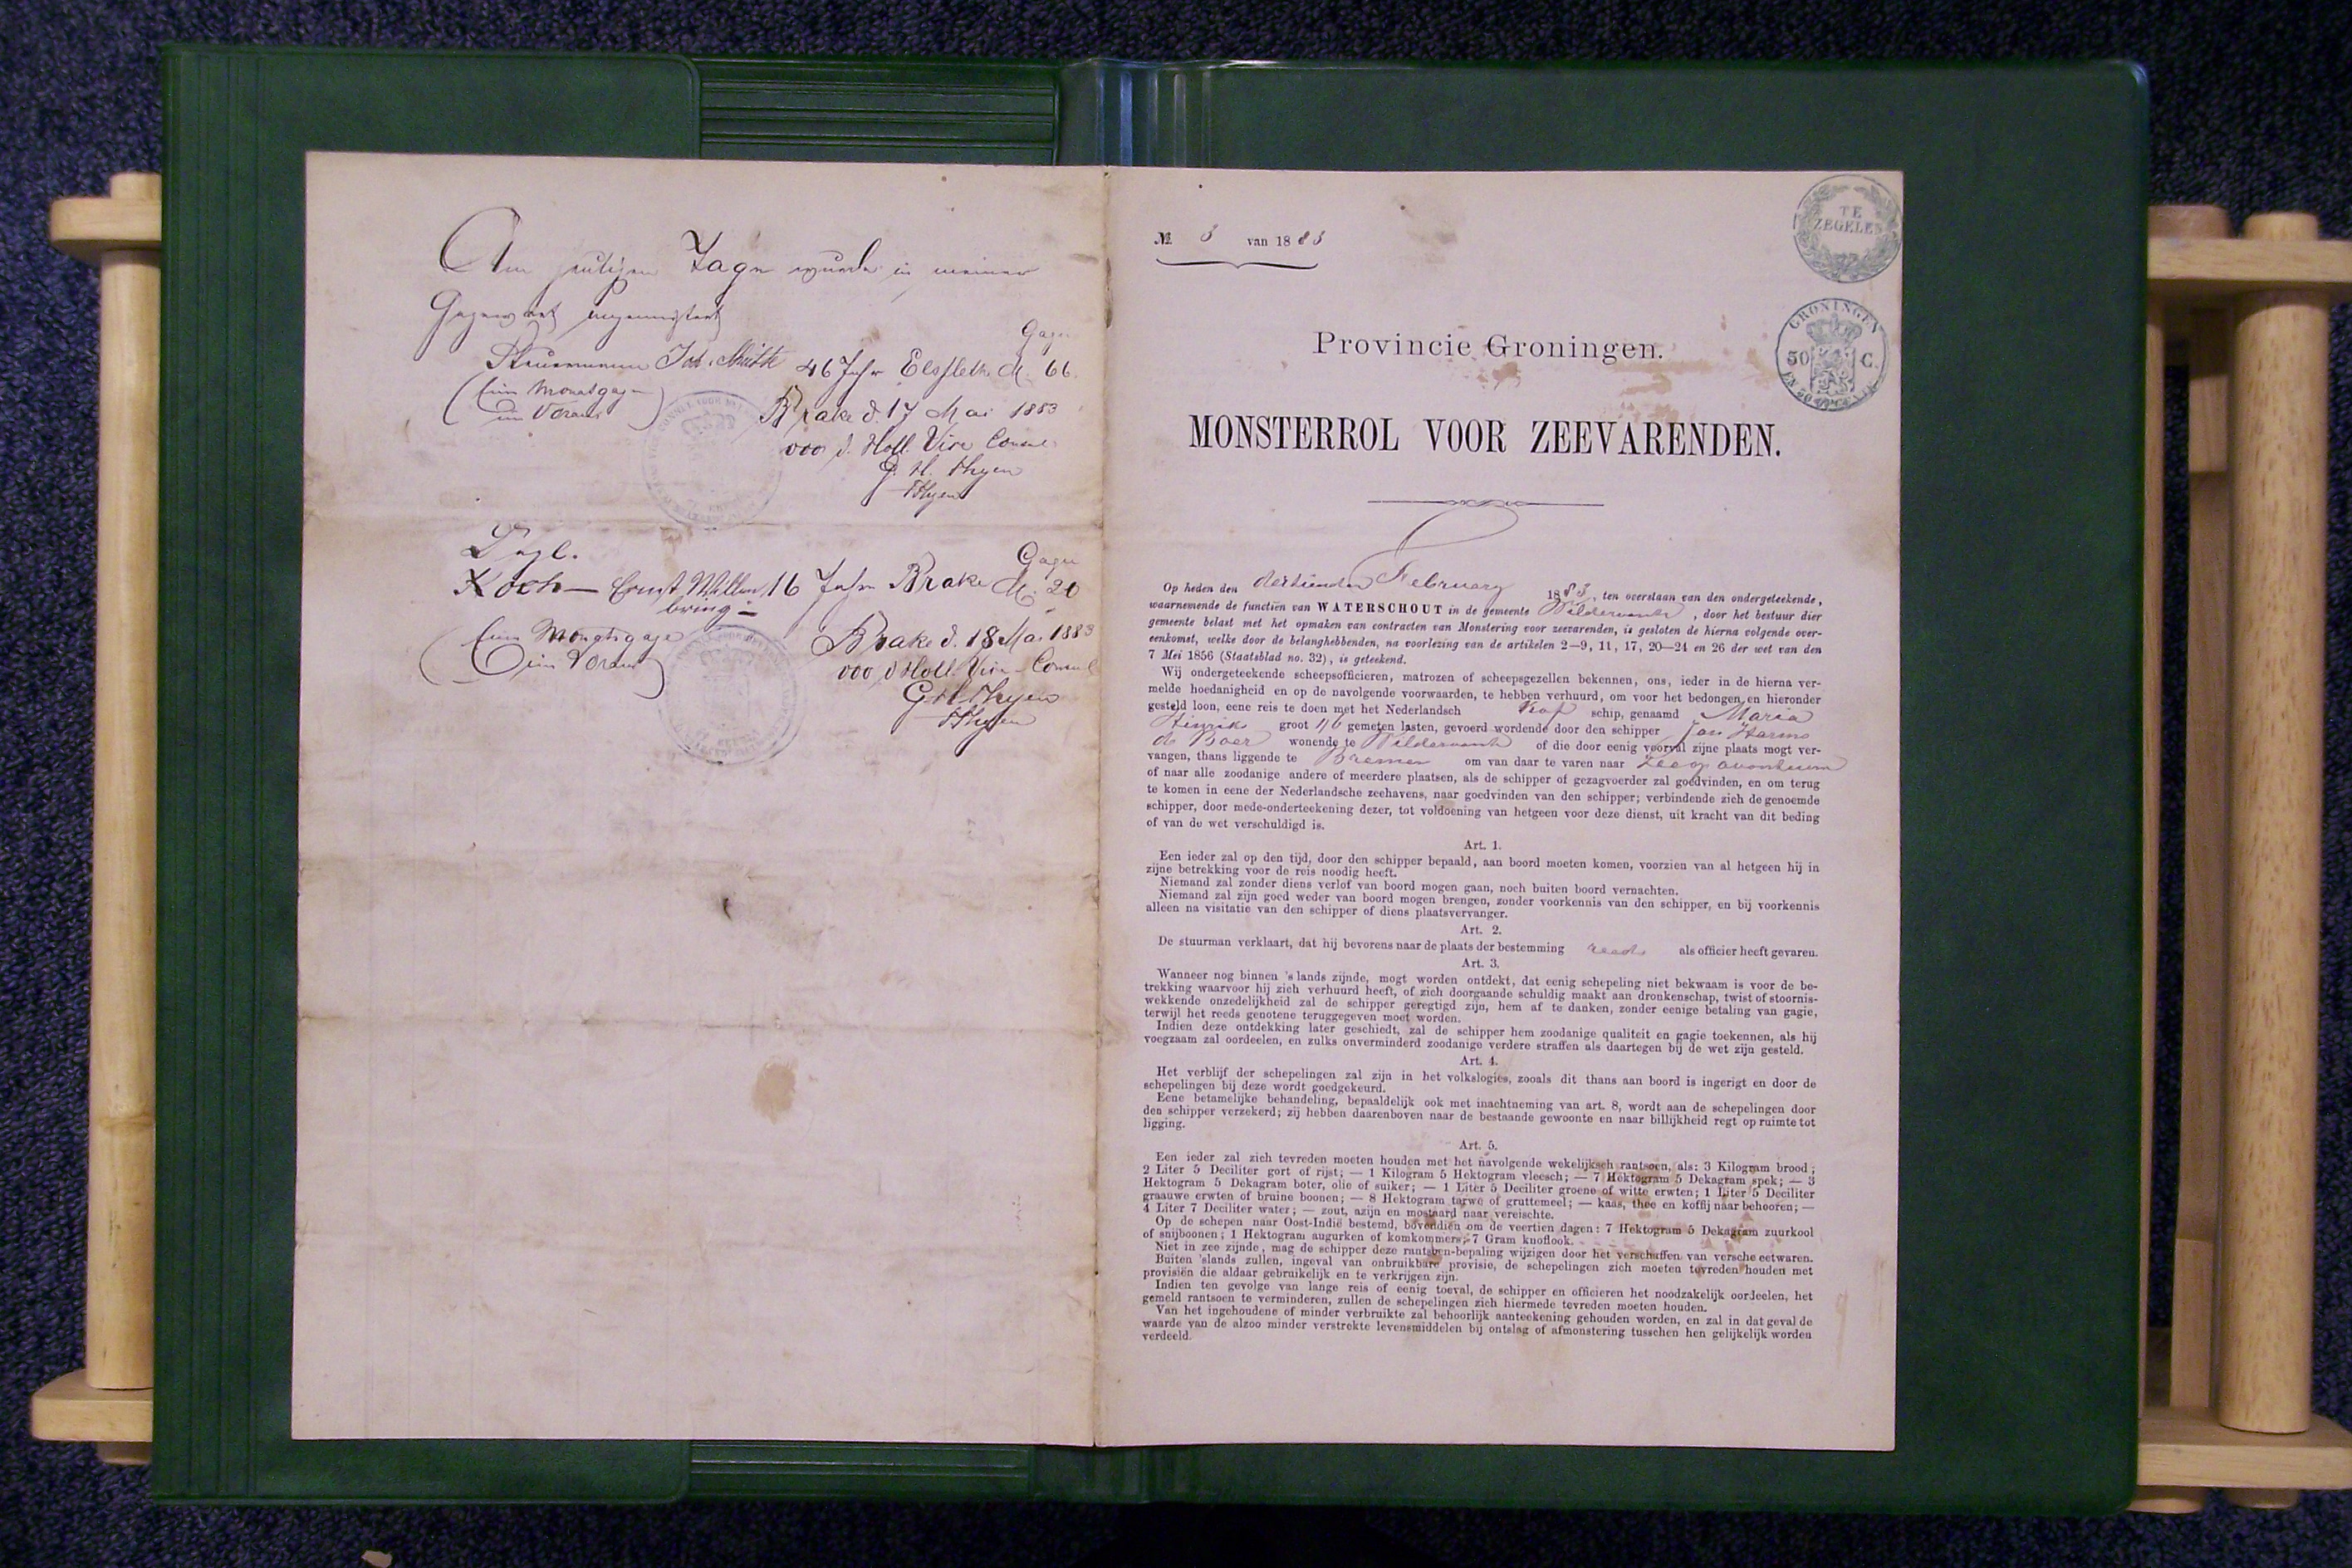 Am heutigen Tage wurde in meiner
Gegenwart angemustert
Gage
Steuermann Joh. 46 Jahr Elsfleth M. 66.
(Eine Monatsgage
im Voraus)
Brake d. 17 Mai 1883
d. Holl. Vice Consul
G. H. Thyen
Thyen
Dsgl.
Gage
Koch — Ernst Willen 16 Jahr Brake M. 20
bring —
(Eine Monatsgage
im Voraus)
Brake d. 18 Mai 1883
d Holl. Vice-Consul
G. H. Thyen
Thyen
№ 3 van 1883
TE
ZEGELEN
GRONINGEN
50 C.
EN 30 OPCENTN
Provincie Groningen.
MONSTERROL VOOR ZEEVARENDEN.
Op heden den dertienden February 1883, ten overstaan van den ondergeteekende,
waarnemende de functiën van WATERSCHOUT in de gemeente Wildervank, door het bestuur dier
gemeente belast met het opmaken van contracten van Monstering voor zeevarenden, is gesloten de hierna volgende over-
eenkomst, welke door de belanghebbenden, na voorlezing van de artikelen 2—9, 11, 17, 20—24 en 26 der wet van den
7 Mei 1856 (Staatsblad no. 32), is geteekend.
Wij ondergeteekende scheepsofficieren, matrozen of scheepsgezellen bekennen, ons, ieder in de hierna ver-
melde hoedanigheid en op de navolgende voorwaarden, te hebben verhuurd, om voor het bedongen en hieronder
gesteld loon, eene reis te doen met het Nederlandsch Kof schip, genaamd Maria
Hinrika groot gemeten lasten, gevoerd wordende door den schipper Jan Harms
de Boer wonende te Wildervank of die door eenig voorval zijne plaats mogt ver-
vangen, thans liggende te Bremen om van daar te varen naar zee op avontuur
of naar alle zoodanige andere of meerdere plaatsen, als de schipper of gezagvoerder zal goedvinden, en om terug
te komen in eene der Nederlandsche zeehavens, naar goedvinden van den schipper; verbindende zich de genoemde
schipper, door mede-onderteekening dezer, tot voldoening van hetgeen voor deze dienst, uit kracht van dit beding
of van de wet verschuldigd is.
Art. 1.
Een ieder zal op den tijd, door den schipper bepaald, aan boord moeten komen, voorzien van al hetgeen hij in
zijne betrekking voor de reis noodig heeft.
Niemand zal zonder diens verlof van boord mogen gaan, noch buiten boord vernachten.
Niemand zal zijn goed weder van boord mogen brengen, zonder voorkennis van den schipper, en bij voorkennis
alleen na visitatie van den schipper of diens plaatsvervanger.
Art. 2.
De stuurman verklaart, dat hij bevorens naar de plaats der bestemming reeds als officier heeft gevaren.
Art. 3.
Wanneer nog binnen 's lands zijnde, mogt worden ontdekt, dat eenig schepeling niet bekwaam is voor de be-
trekking waarvoor hij zich verhuurd heeft, of zich doorgaande schuldig maakt aan dronkenschap, twist of stoornis-
wekkende onzedelijkheid zal de schipper geregtigd zijn, hem af te danken, zonder eenige betaling van gagie,
terwijl het reeds genotene teruggegeven moet worden.
Indien deze ontdekking later geschiedt, zal de schipper hem zoodanige qualiteit en gagie toekennen, als hij
voegzaam zal oordeelen, en zulks onverminderd zoodanige verdere straffen als daartegen bij de wet zijn gesteld.
Art. 4.
Het verblijf der schepelingen zal zijn in het volkslogies, zooals dit thans aan boord is ingerigt en door de
schepelingen bij deze wordt goedgekeurd.
Eene betamelijke behandeling, bepaaldelijk ook met inachtneming van art. 8, wordt aan de schepelingen door
den schipper verzekerd; zij hebben daarenboven naar de bestaande gewoonte en naar billijkheid regt op ruimte tot
ligging.
Art. 5.
Een ieder zal zich tevreden moeten houden met het navolgende wekelijksch rantsoen, als: 3 Kilogram brood;
2 Liter 5 Deciliter gort of rijst; — 1 Kilogram 5 Hektogram vleesch; — 7 Hektogram 5 Dekagram spek; — 3
Hektogram 5 Dekagram boter, olie of suiker; — 1 Liter 5 Deciliter groene of witte erwten; 1 Liter 5 Deciliter
graauwe erwten of bruine boonen; — 8 Hektogram tarwe of gruttemeel; — kaas, thee en koffij naar behooren; —
4 Liter 7 Deciliter water; — zout, azijn en mostaard naar vereischte.
Op de schepen naar Oost-Indië bestemd, bovendien om de veertien dagen: 7 Hektogram 5 Dekagram zuurkool
of snijboonen; 1 Hektogram augurken of komkommers; 7 Gram knoflook.
Niet in zee zijnde, mag de schipper deze rantsoen-bepaling wijzigen door het verschaffen van versche eetwaren.
Buiten 'slands zullen, ingeval van onbruikbare provisie, de schepelingen zich moeten tevreden houden met
provisiën die aldaar gebruikelijk en te verkrijgen zijn.
Indien ten gevolge van lange reis of eenig toeval, de schipper en officieren het noodzakelijk oordeelen, het
gemeld rantsoen te verminderen, zullen de schepelingen zich hiermede tevreden moeten houden.
Van het ingehoudene of minder verbruikte zal behoorlijk aanteekening gehouden worden, en zal in dat geval de
waarde van de alzoo minder verstrekte levensmiddelen bij ontslag of afmonstering tusschen hen gelijkelijk worden
verdeeld.